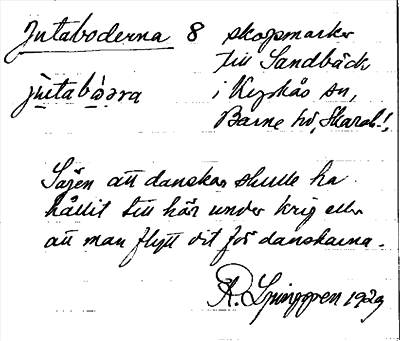 Jutaboderna 8 skogsmarker
till Sandbäck
jùtabòǝra i Kyrkås sn,
Barne hd, Skarab.l.,
Sägen att danskar skulle ha
hållit till här under krig eller
att man flytt dit för danskarna.
R. Ljunggren 1929